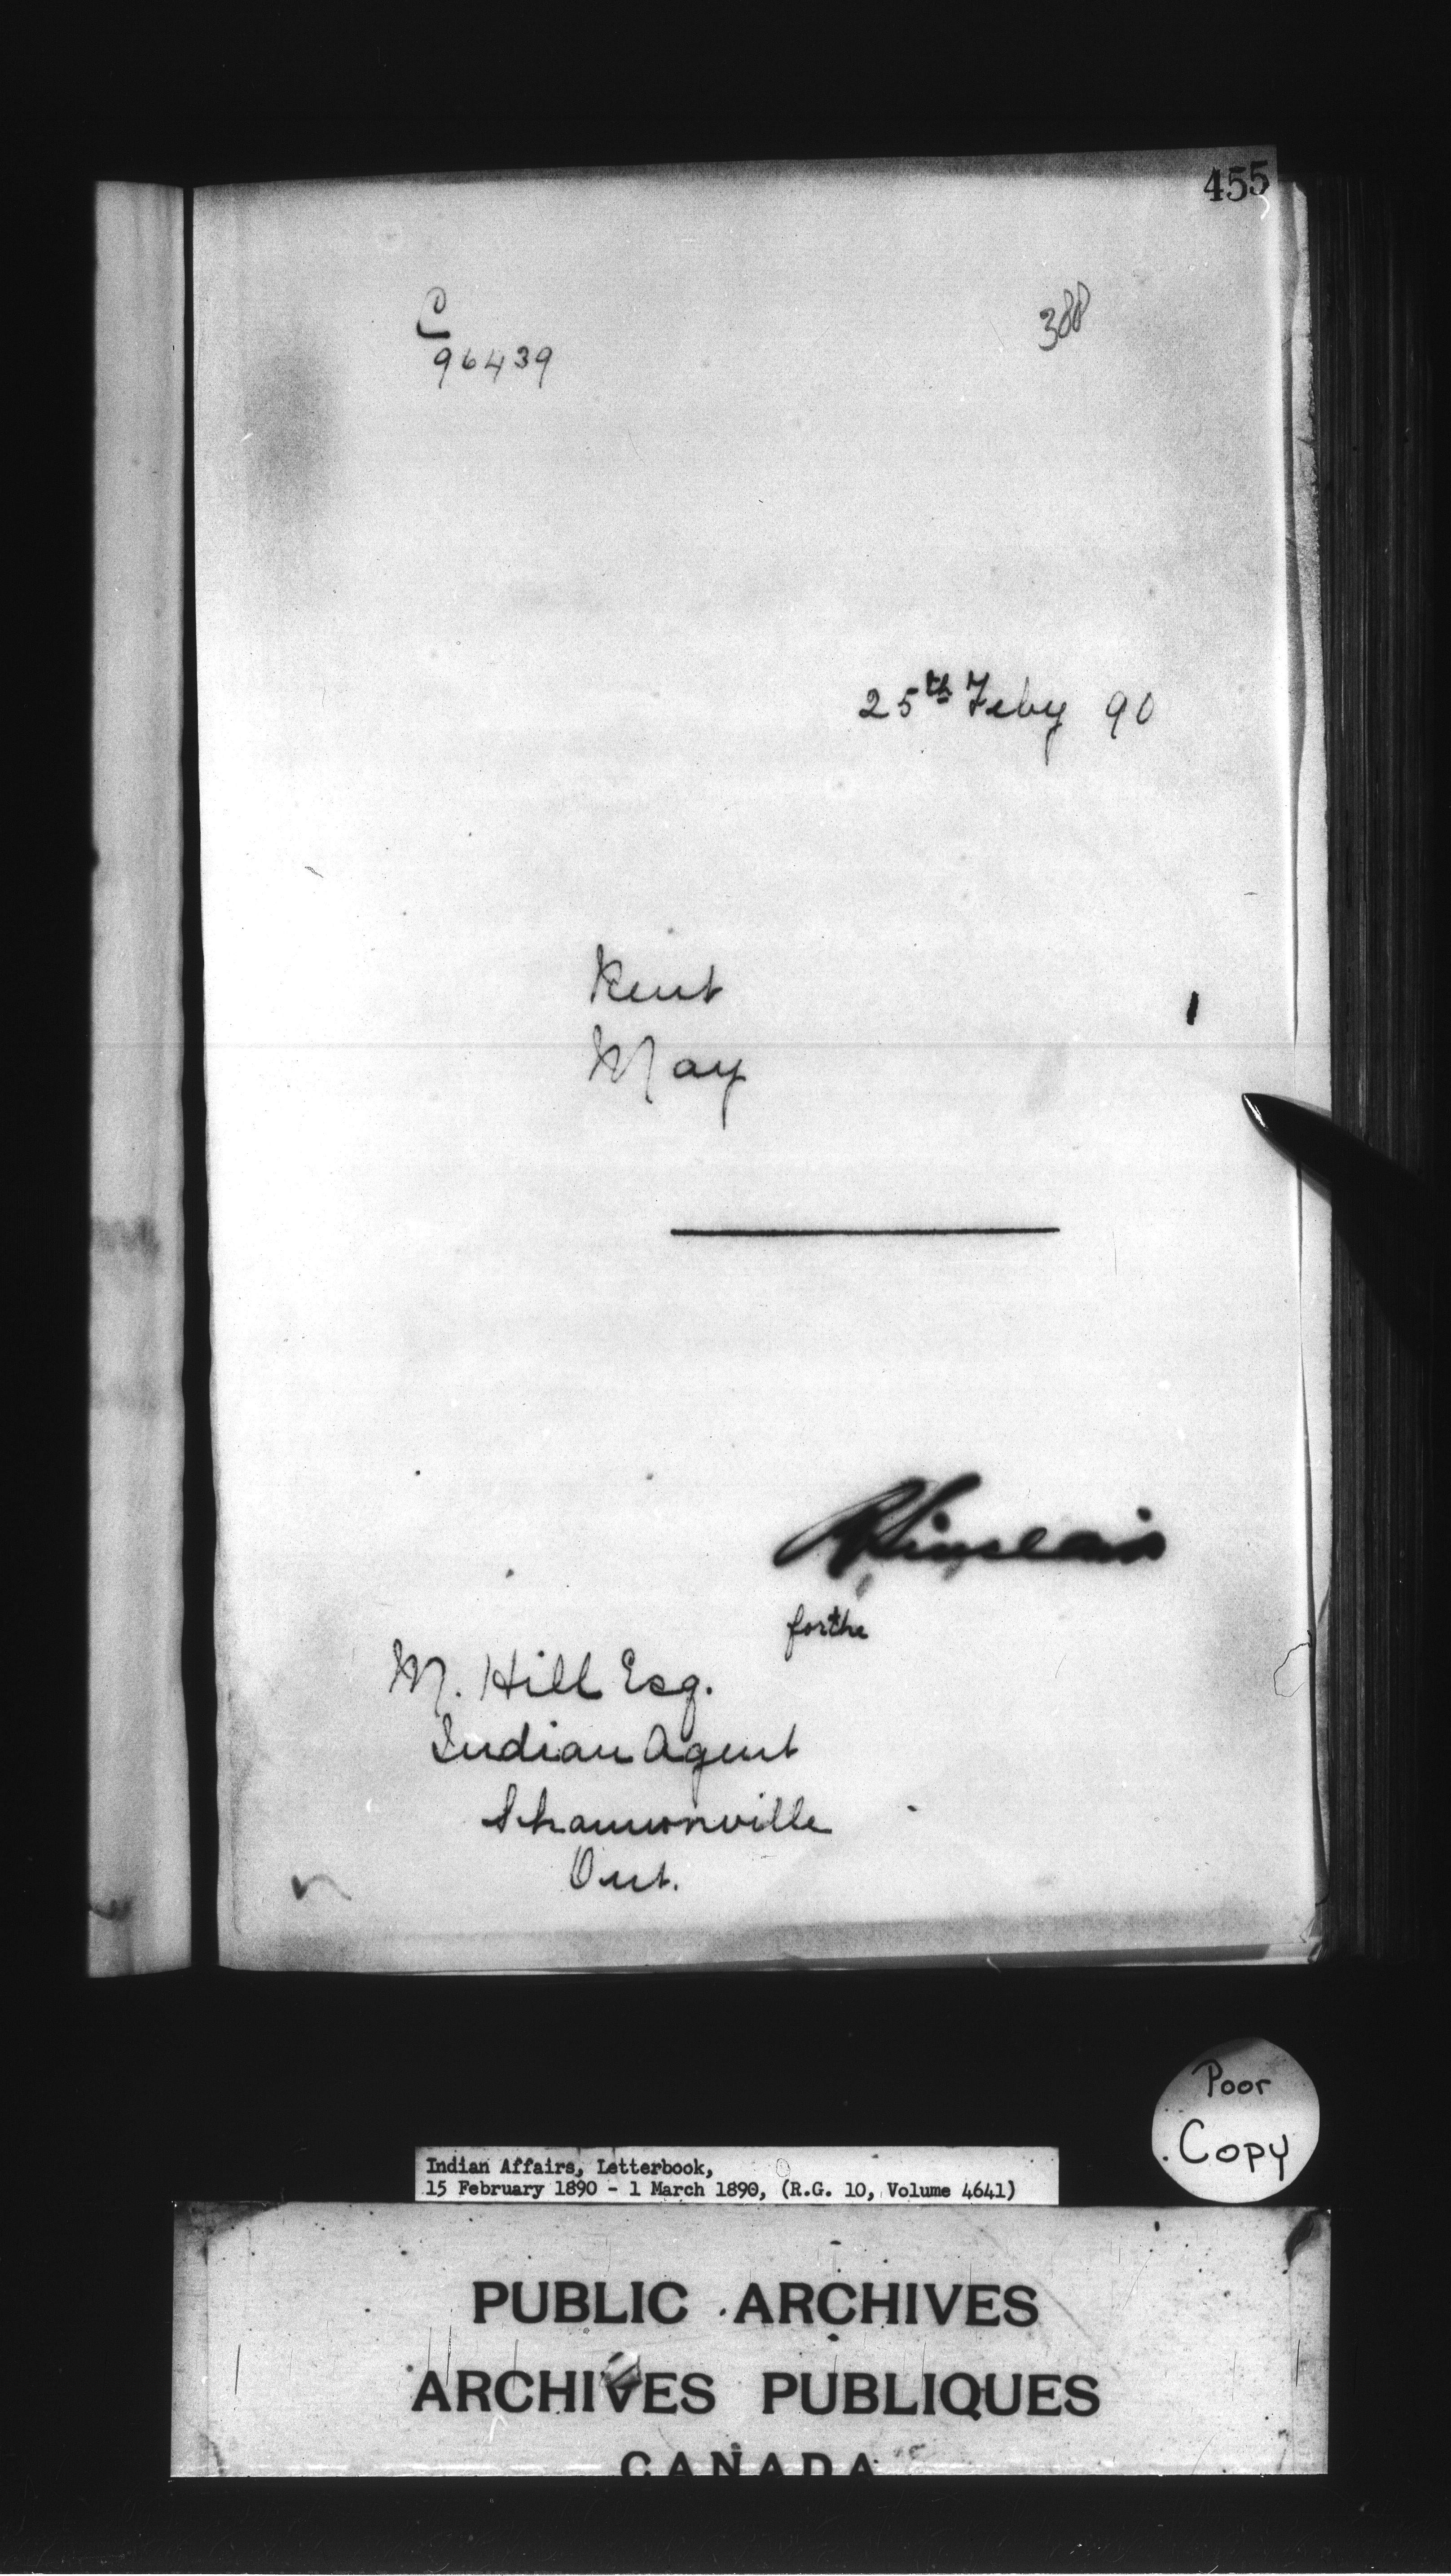 455
C
96439
388
25th Feby 90
Rent
May
RSinclair
for the
M. Hill Esq.
Indian Agent
Shannonville
Ont.
Poor
Copy
Indian Affairs, Letterbook,
15 February 1890 - 1 March 1890, (R.G. 10, Volume 4641)
PUBLIC ARCHIVES
ARCHIVES PUBLIQUES
CANADA